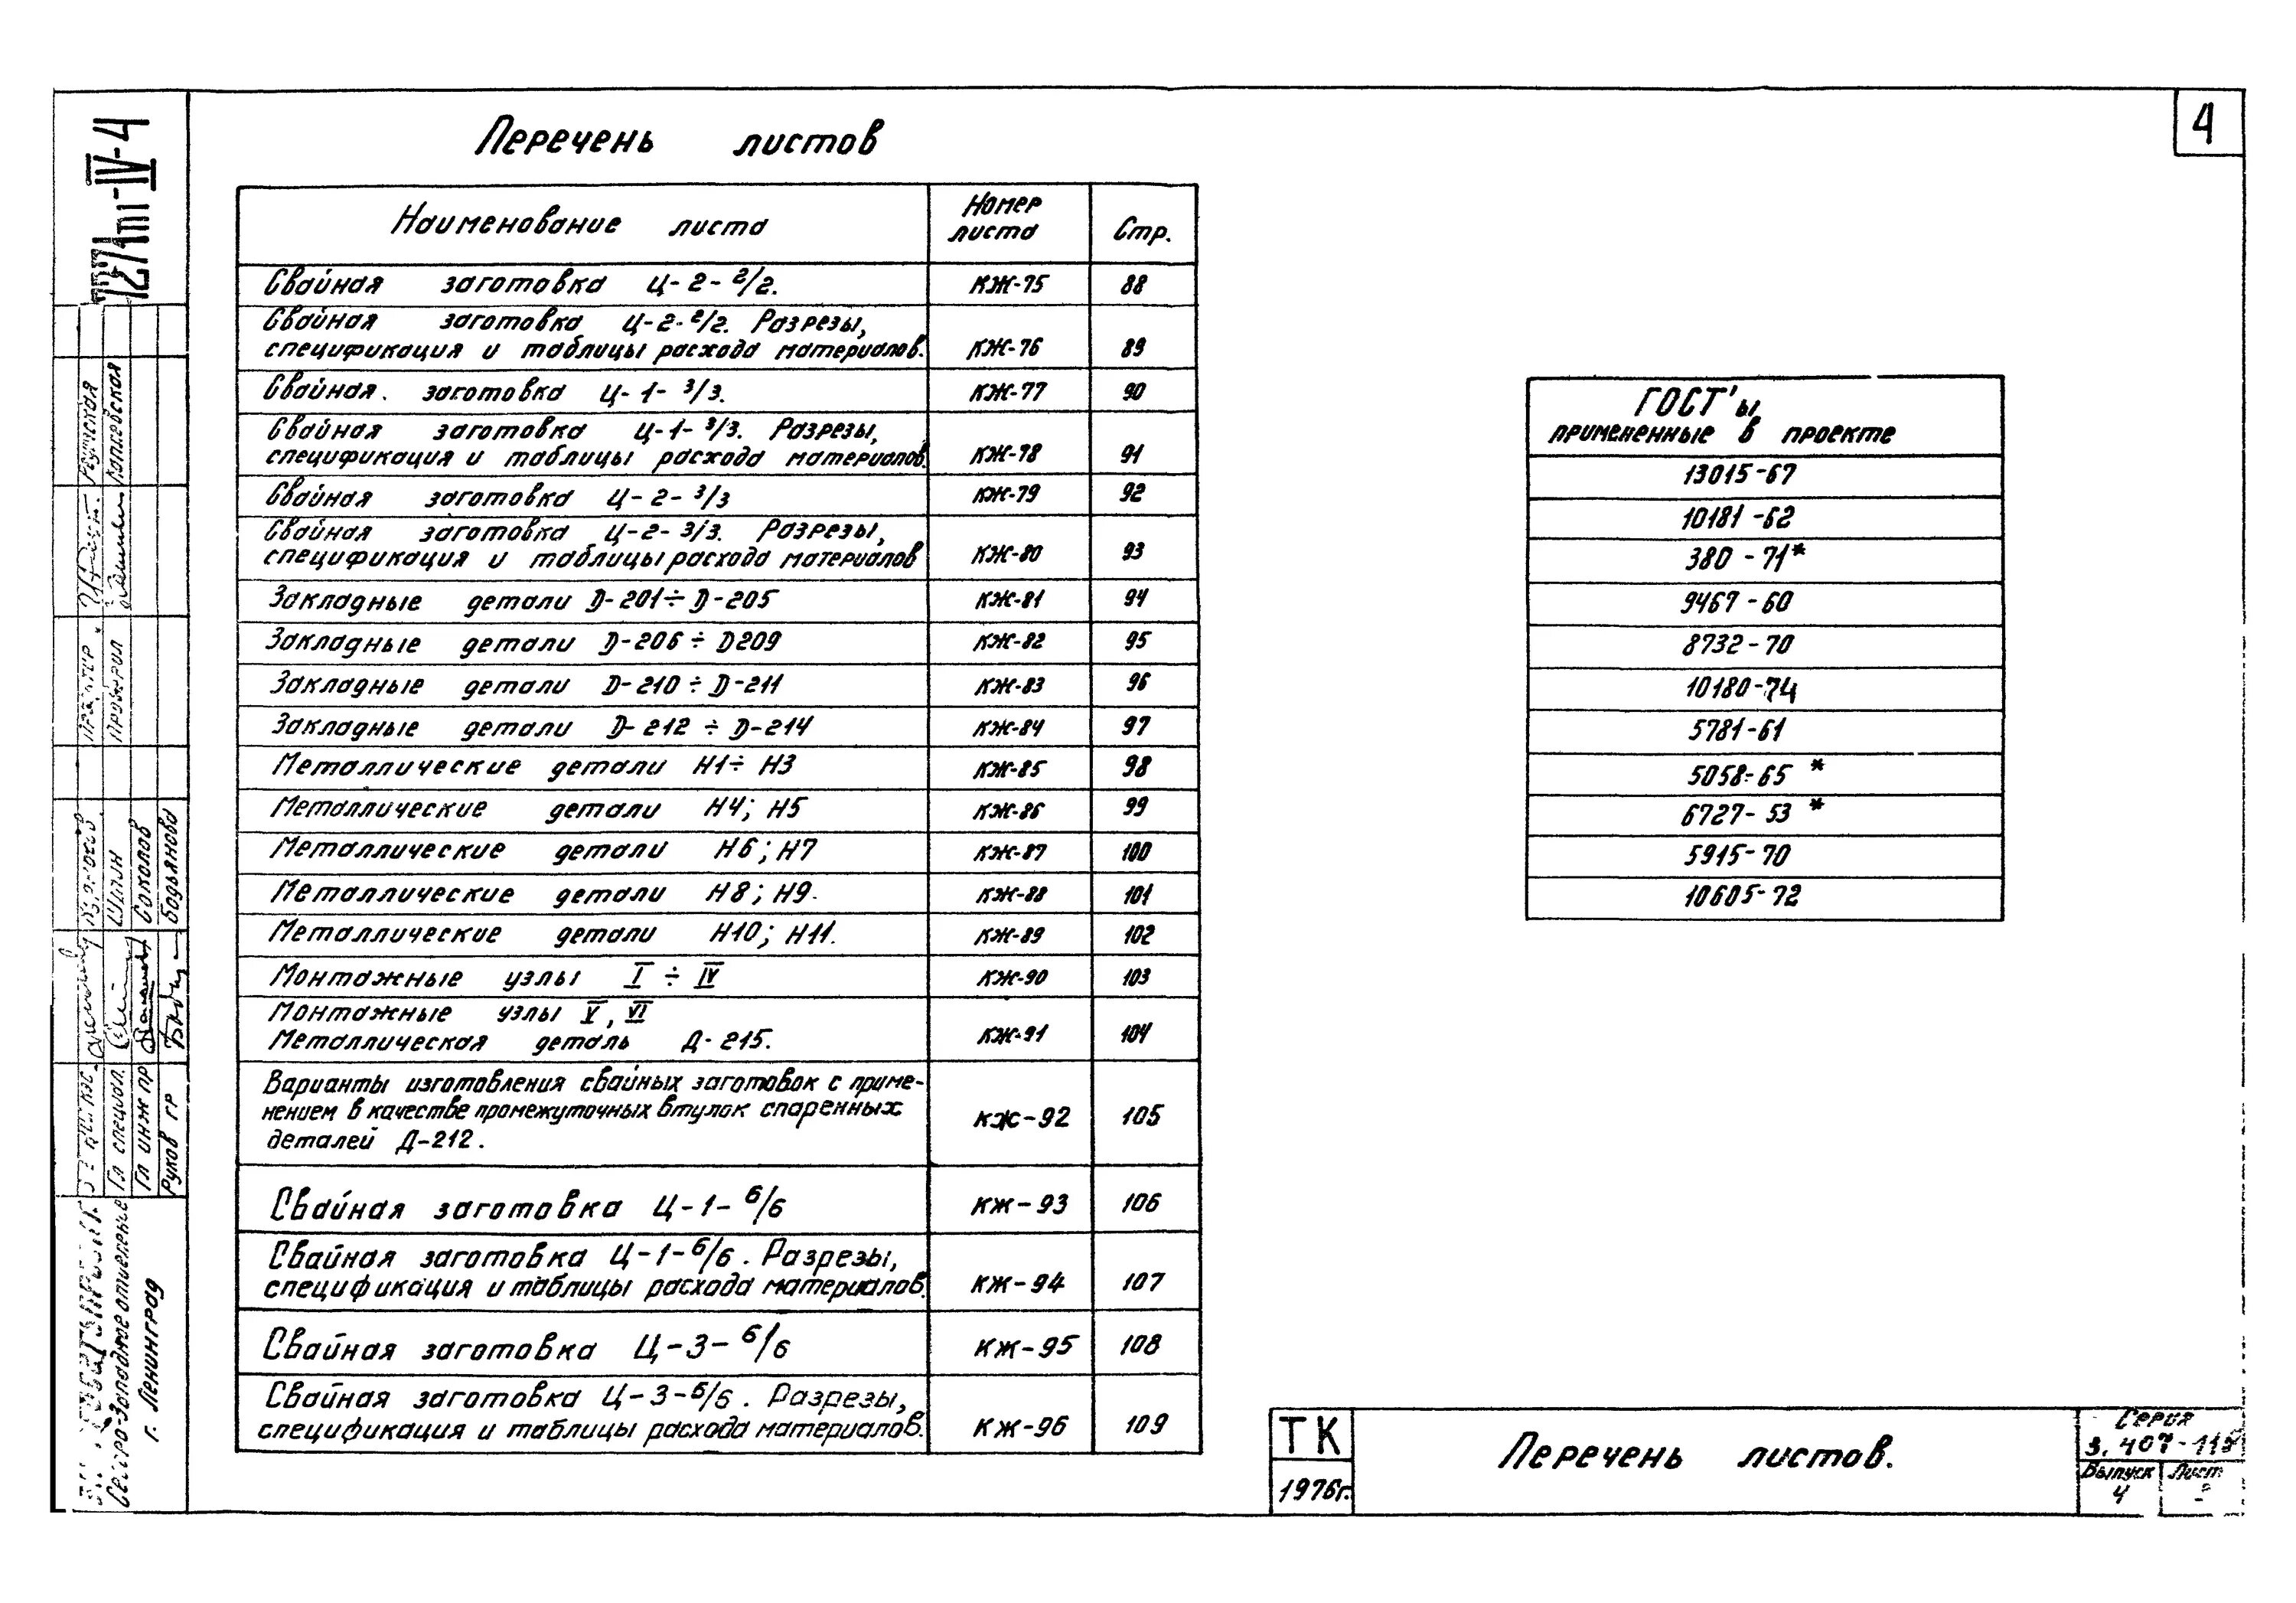 4
Перечень листов
Наименование листа | Номер листа | Стр.
Свайная заготовка Ц-2-2/2. | КЖ-75 | 88
Свайная заготовка Ц-2-2/2. Разрезы,
спецификация и таблицы расхода материалов. | КЖ-76 | 89
Свайная заготовка Ц-1-3/3. | КЖ-77 | 90
Свайная заготовка Ц-1-3/3. Разрезы,
спецификация и таблицы расхода материалов. | КЖ-78 | 91
Свайная заготовка Ц-2-3/3 | КЖ-79 | 92
Свайная заготовка Ц-2-3/3. Разрезы,
спецификация и таблицы расхода материалов | КЖ-80 | 93
Закладные детали D-201÷D-205 | КЖ-81 | 94
Закладные детали D-206÷D209 | КЖ-82 | 95
Закладные детали D-210÷D-211 | КЖ-83 | 96
Закладные детали D-212÷D-214 | КЖ-84 | 97
Металлические детали Н1÷Н3 | КЖ-85 | 98
Металлические детали Н4; Н5 | КЖ-86 | 99
Металлические детали Н6; Н7 | КЖ-87 | 100
Металлические детали Н8; Н9. | КЖ-88 | 101
Металлические детали Н10; Н11. | КЖ-89 | 102
Монтажные узлы I÷IV | КЖ-90 | 103
Монтажные узлы V, VI
Металлическая деталь Д-215. | КЖ-91 | 104
Варианты изготовления свайных заготовок с приме-
нением в качестве промежуточных втулок спаренных
деталей Д-212. | КЖ-92 | 105
Свайная заготовка Ц-1-6/6 | КЖ-93 | 106
Свайная заготовка Ц-1-6/6. Разрезы,
спецификация и таблицы расхода материалов. | КЖ-94 | 107
Свайная заготовка Ц-3-6/6 | КЖ-95 | 108
Свайная заготовка Ц-3-6/6. Разрезы,
спецификация и таблицы расхода материалов. | КЖ-96 | 109
ГОСТ'ы
примененные в проекте
13015-67
10181-62
380-71*
9467-60
8732-70
10180-74
5781-61
5058-65*
6727-53*
5915-70
10605-72
ТК
1976г.
Перечень листов.
Серия
3.407-115
Выпуск
4
Лист
-IV-4
Проверил
Шпин
Соколов
Бодьянова
Гл специал.
Гл инж пр
Руков гр
Северо-Западное отделение
г. Ленинград